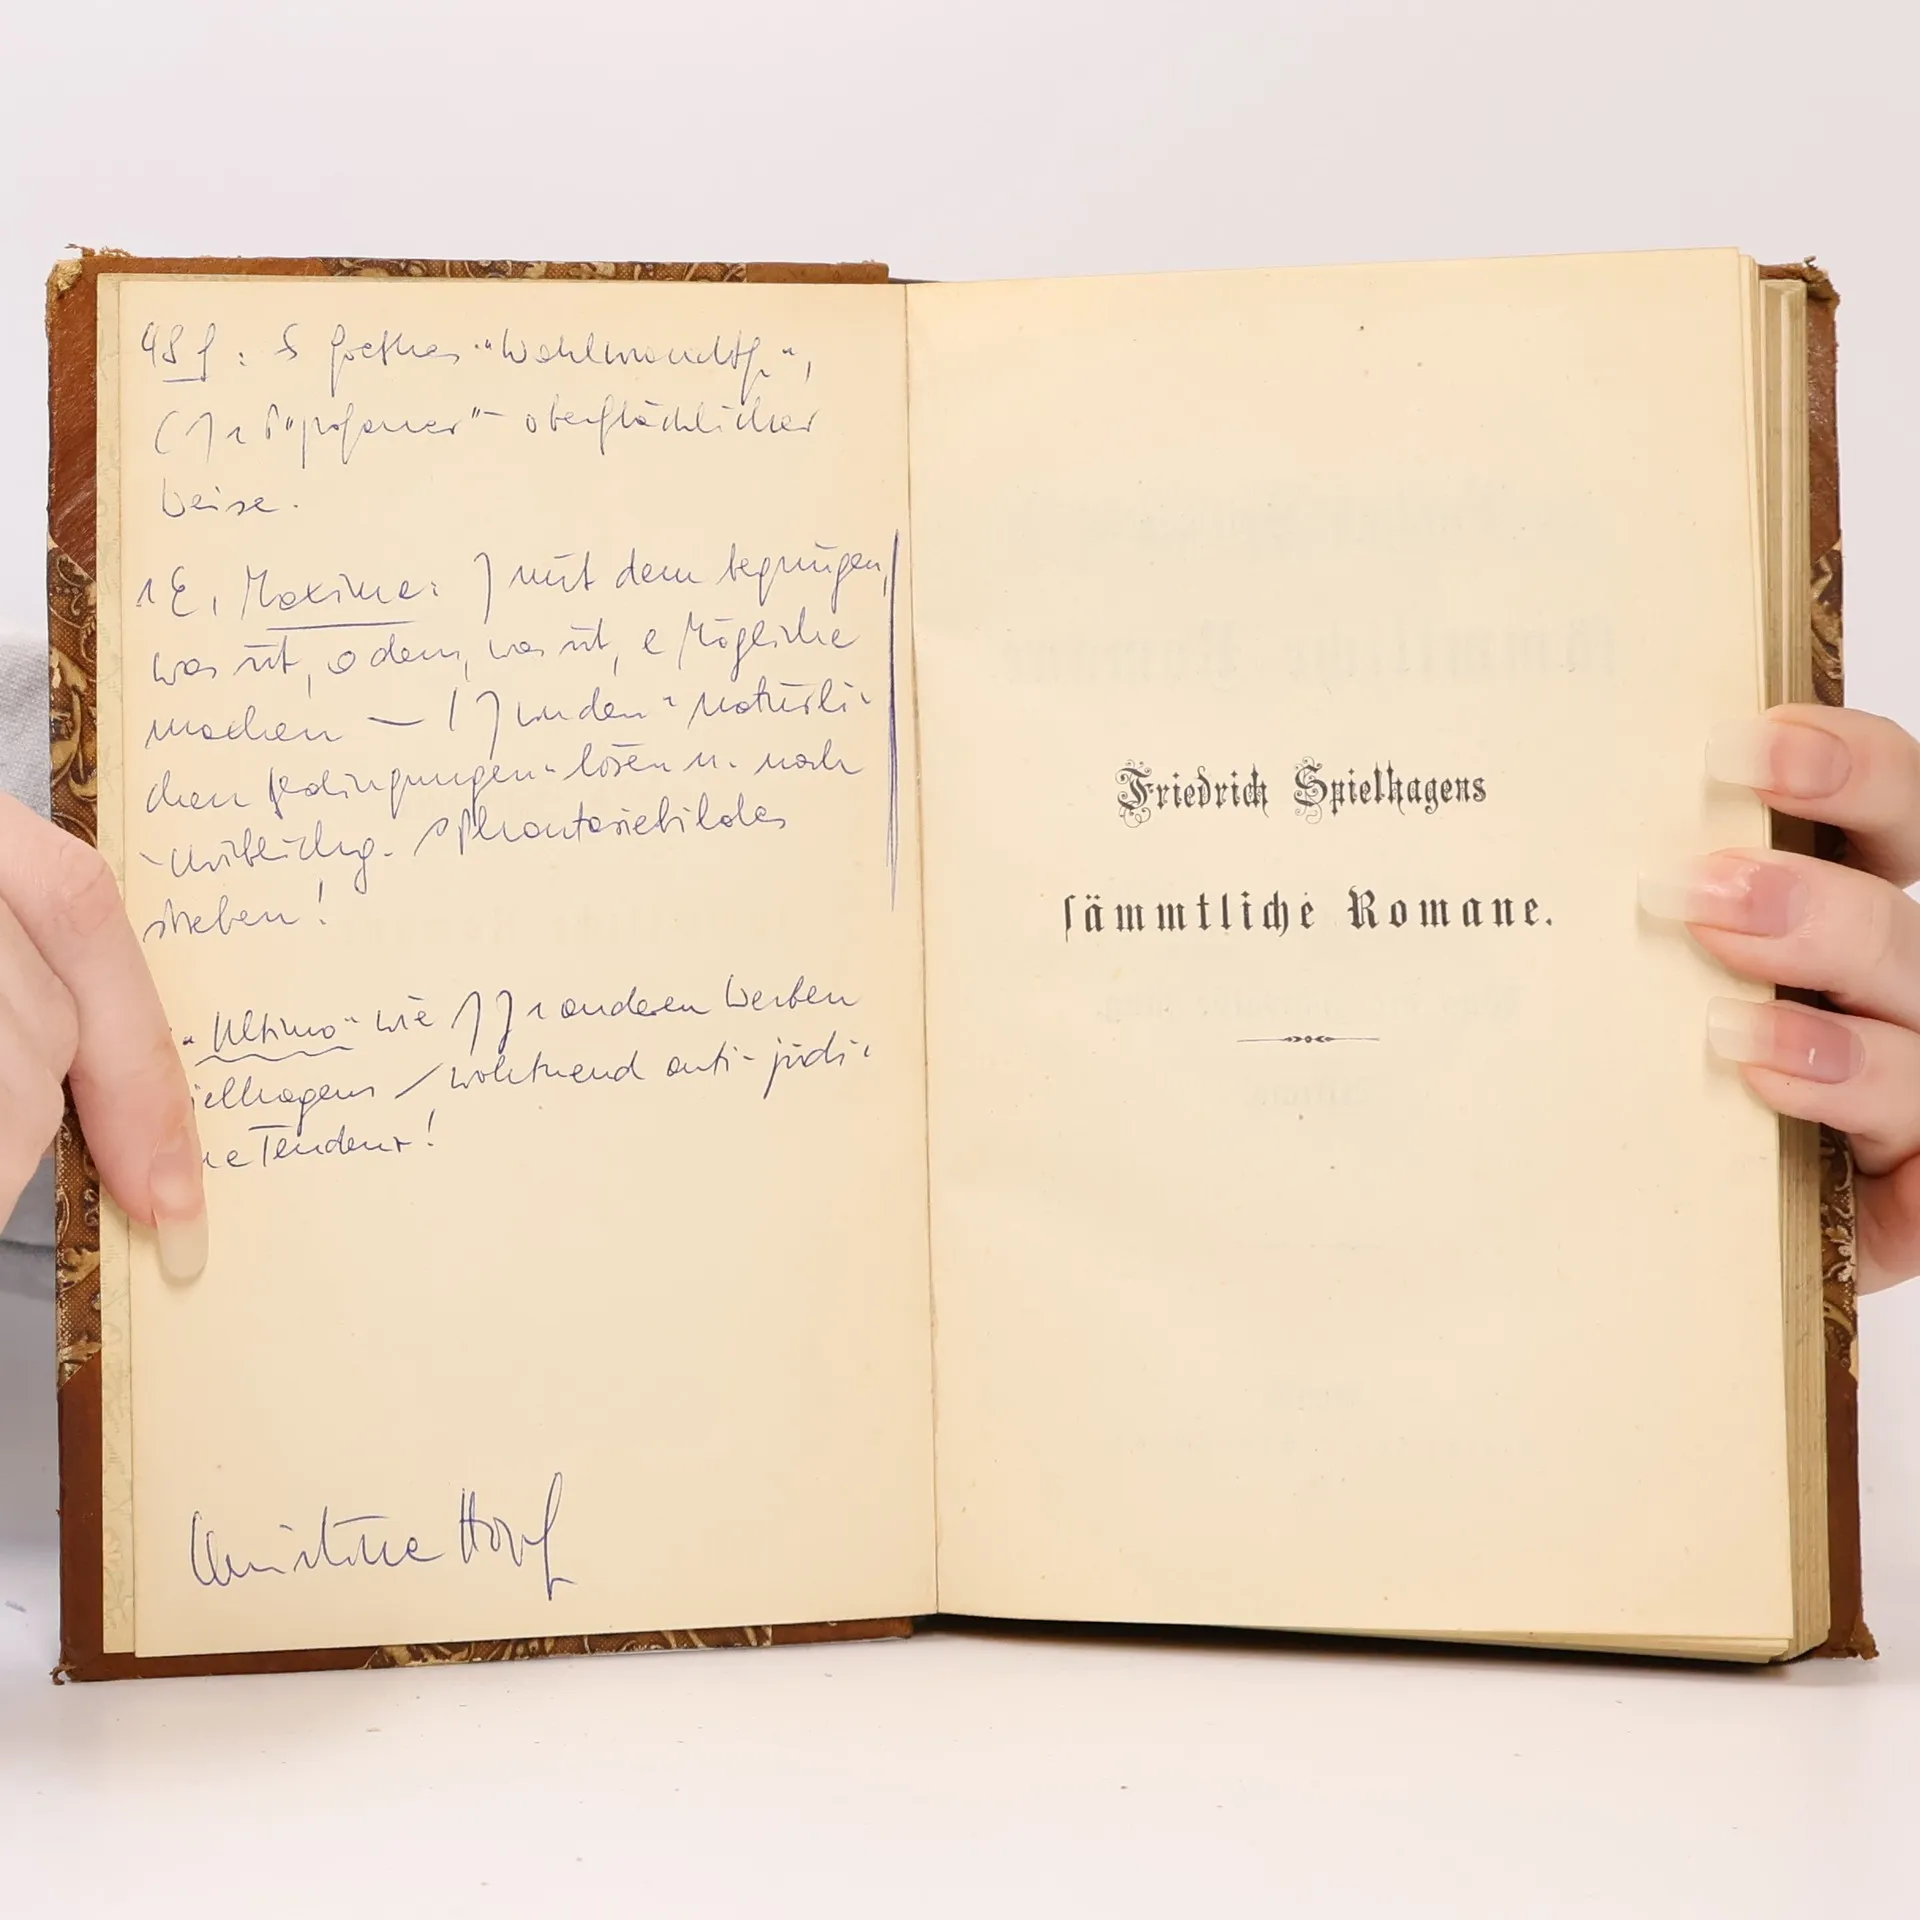 48 f: Goethes "Wahlverwandtsch.",
"profaner" - oberflächlicher
Weise.
Maxime: mit dem begnügen,
was ist, o dem, was ist, e Mögliche
machen — von den "natürli-
chen Bedingungen" lösen u. nach
Phantasiebildes
streben!
"Ultimo" wie anderen Werken
ielhagens / wohltuend anti-jüdi-
ne Tendenz!
Christine Hopf
Friedrich Spielhagens
sämmtliche Romane.